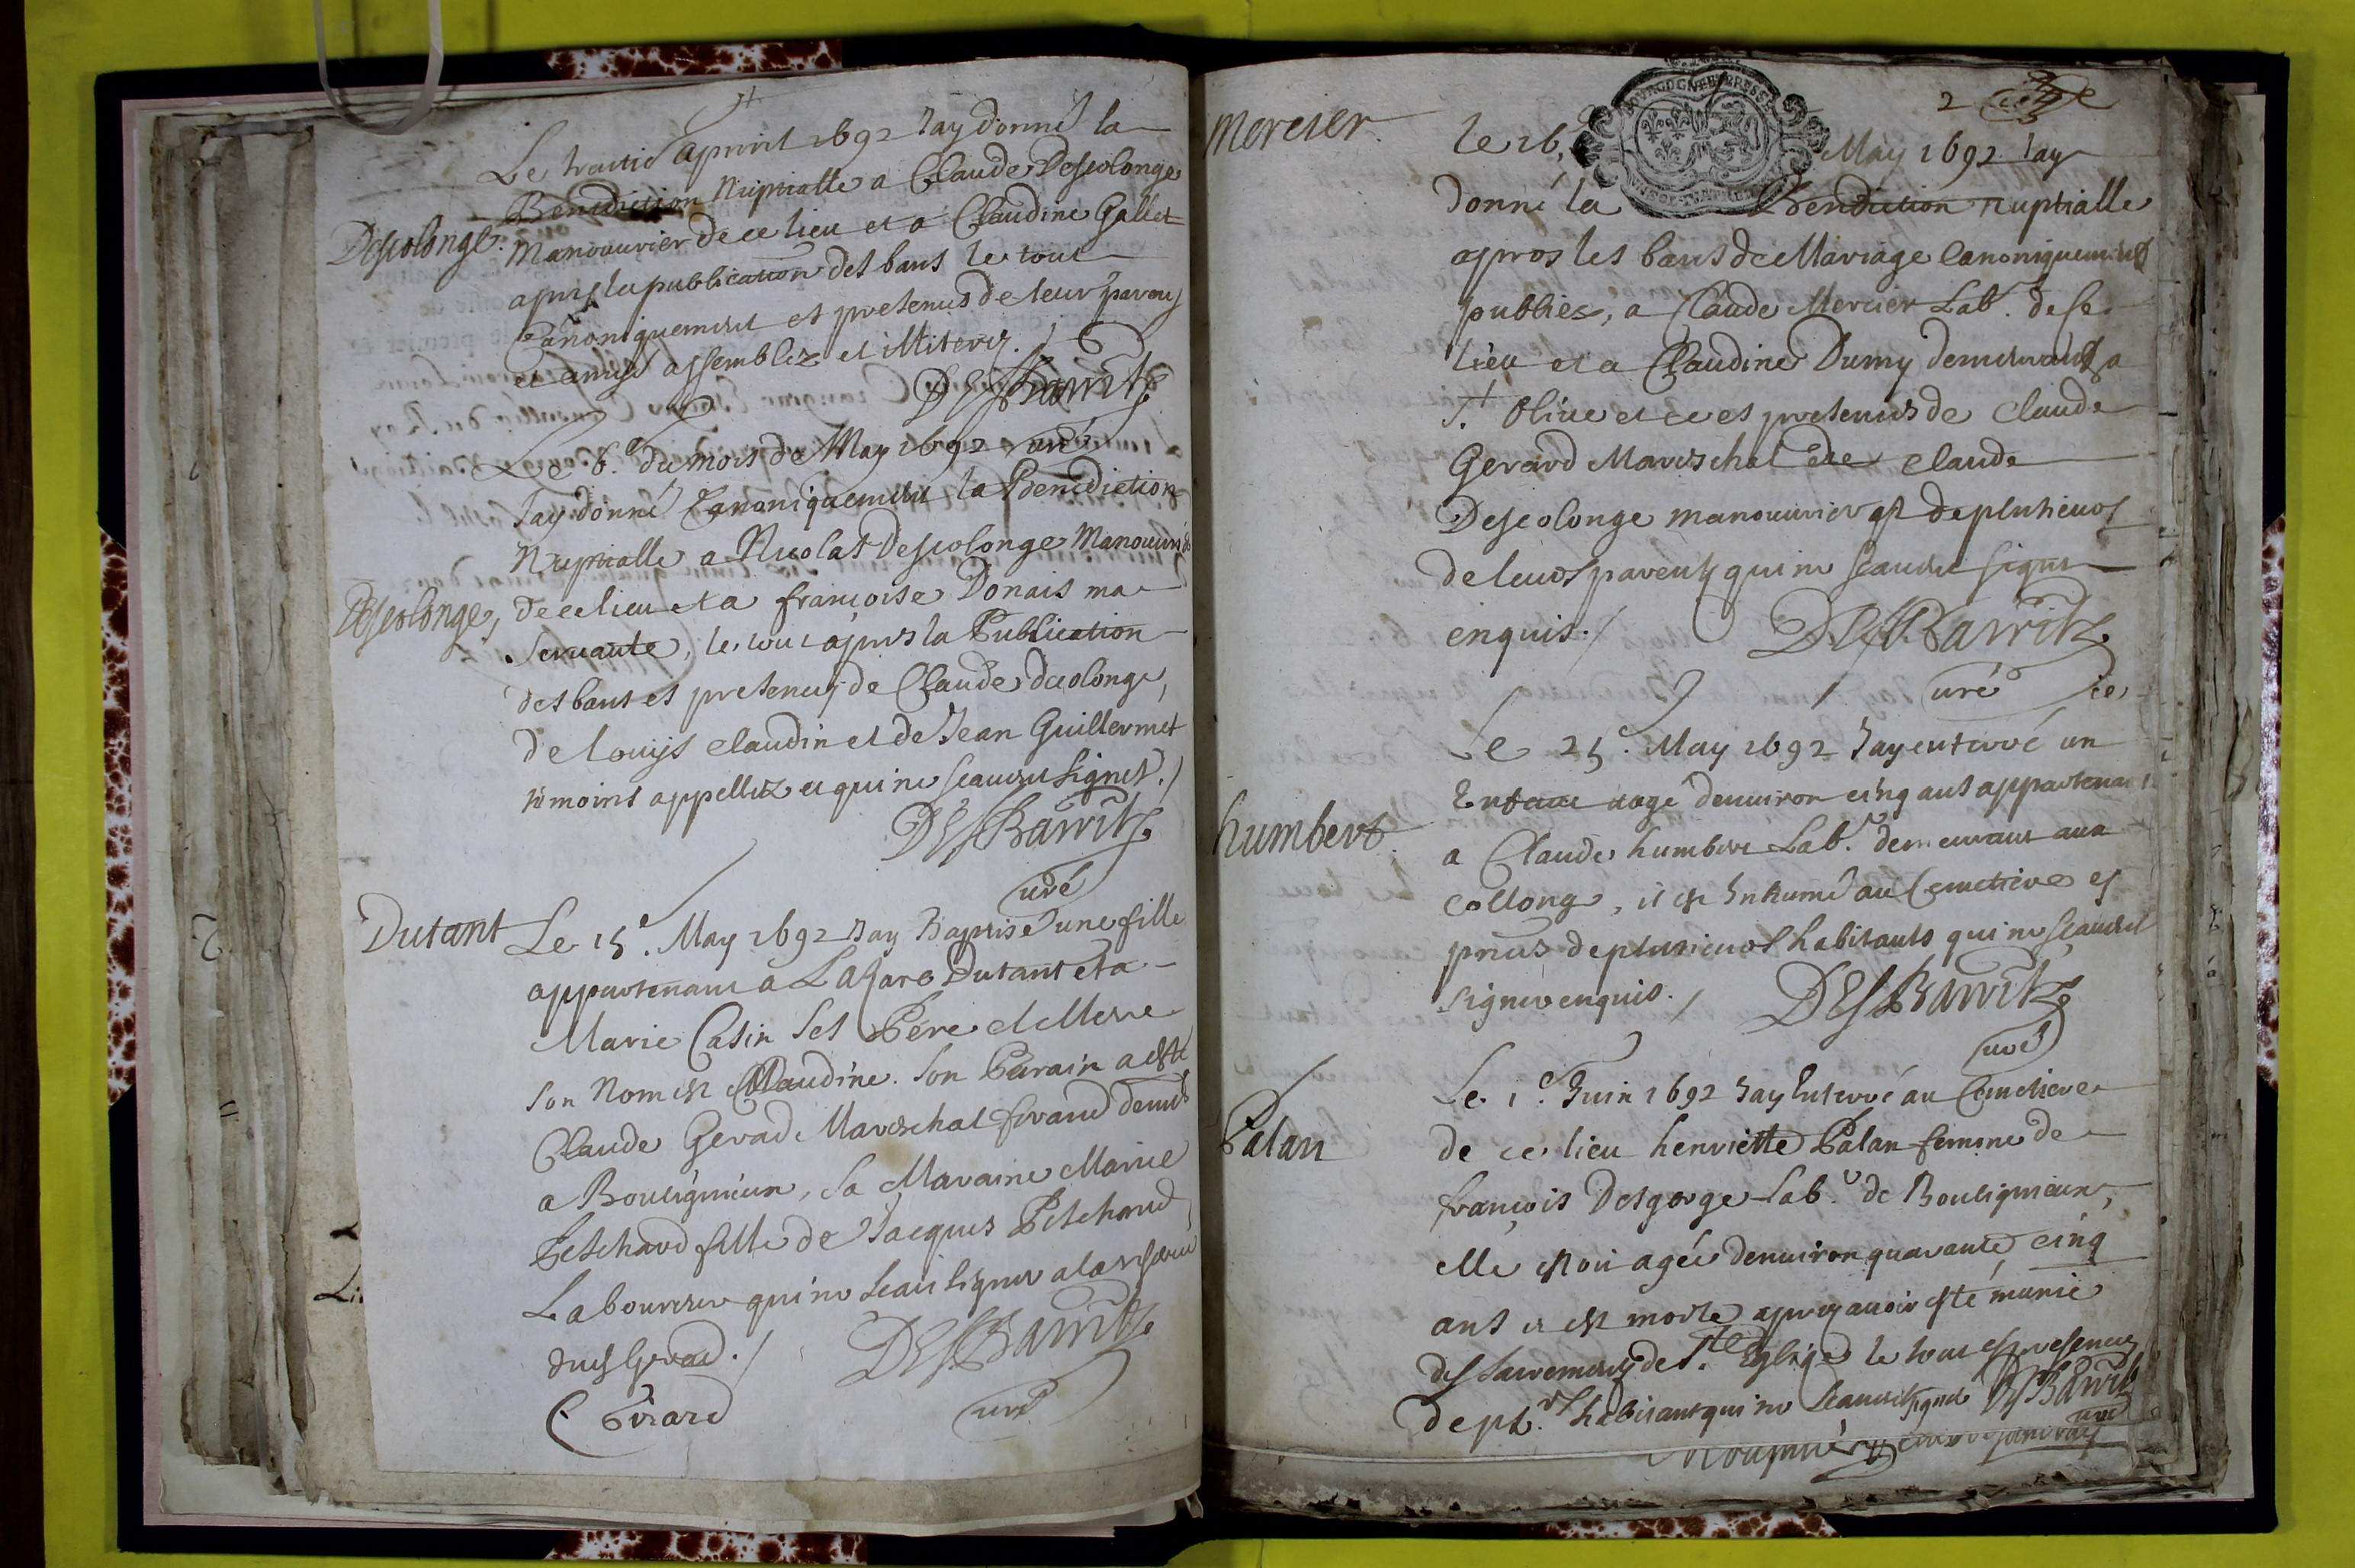 Le traitié apvril 1692 Jay donné la
Benediction Nuptialle a Claude Descolonge
Descolonge.
Manouurier de ce lieu et a Claudine Gallet
apres la publication des bans le tout
Canoniquement et presences de leur parens
et amis assemblez et
DESBarritz
Le 6.e du mois de May 1692 uré
Jay donné Canoniquement la Benediction
Nuptialle a Nicolas Descolonge Manouurié
Descolonge,
de ce lieu et a françoise Donais ma
Seruante, le tout apres la Publication
des bans es presences de Claude dcolonge,
de Louijs Claudin et de Jean Guillermet
témoins appellez et qui ne scauent signer./
DESBarritz
uré
Dutant
Le 15.e May 1692 Jay Baptisé une fille
appartenant a Lazare Dutant et a
Marie Casin ses Pere et Mere
Son Nom est Claudine. Son Parain a esté
Claude Gerad Mareschal ferand demt
a Boulignieux, sa Maraine Marie
Petchard fille de Jacques Petchard
Laboureur qui ne scait signer a la reserue
duds Gerad./
DESBarritz
C Girard
uré
2
Mercier.
le 16.e May 1692 Jay
BOURGOGNE BRESSE
donné la Benediction nuptialle
apres les bans de Mariage Canoniquement
publiés, a Claude Mercier Lab.r de se
lieu et a Claudine Dumy demeurant a
St. Oliue et ce es presences de Claude
Gerard Mareschal de Claude
Descolonge manouurier et de plusieurs
de leurs parents qui ne scauent signer
enquis./
DESBarritz
uré
Le 25.e May 1692 Jay enterré un
Enfant aagé denuiron cinq ans appartenant
humbert.
a Claude humbert Lab.r demeurant aux
Collonge, il est Inhumé au Cemetiere es
pnces de plusieurs habitants qui ne scauent
signer enquis./
DESBarritz
uré
Le 1.e Juin 1692 Jay Enterré au Cemetiere
Palan
de ce lieu henriette Palan femme de
françois Desgorge Lab.r de Bouligneux,
elle estoit agée denuiron quarante cinq
ans et est morte apres auoir esté munie
des Sacrements de Ste Eglise le tout es presences
de plrs habitant qui ne scauent signer DESBarritz
uré